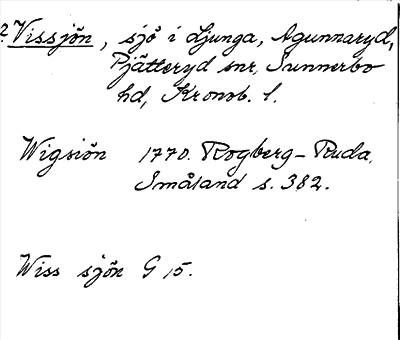 ? Vissjön, sjö i Ljunga, Agunnaryd,
Pjätteryd snr, Sunnerbo
hd, Kronob. l.
Wigsiön 1770. Rogberg-Ruda,
Småland s. 382.
Wiss sjön G 15.